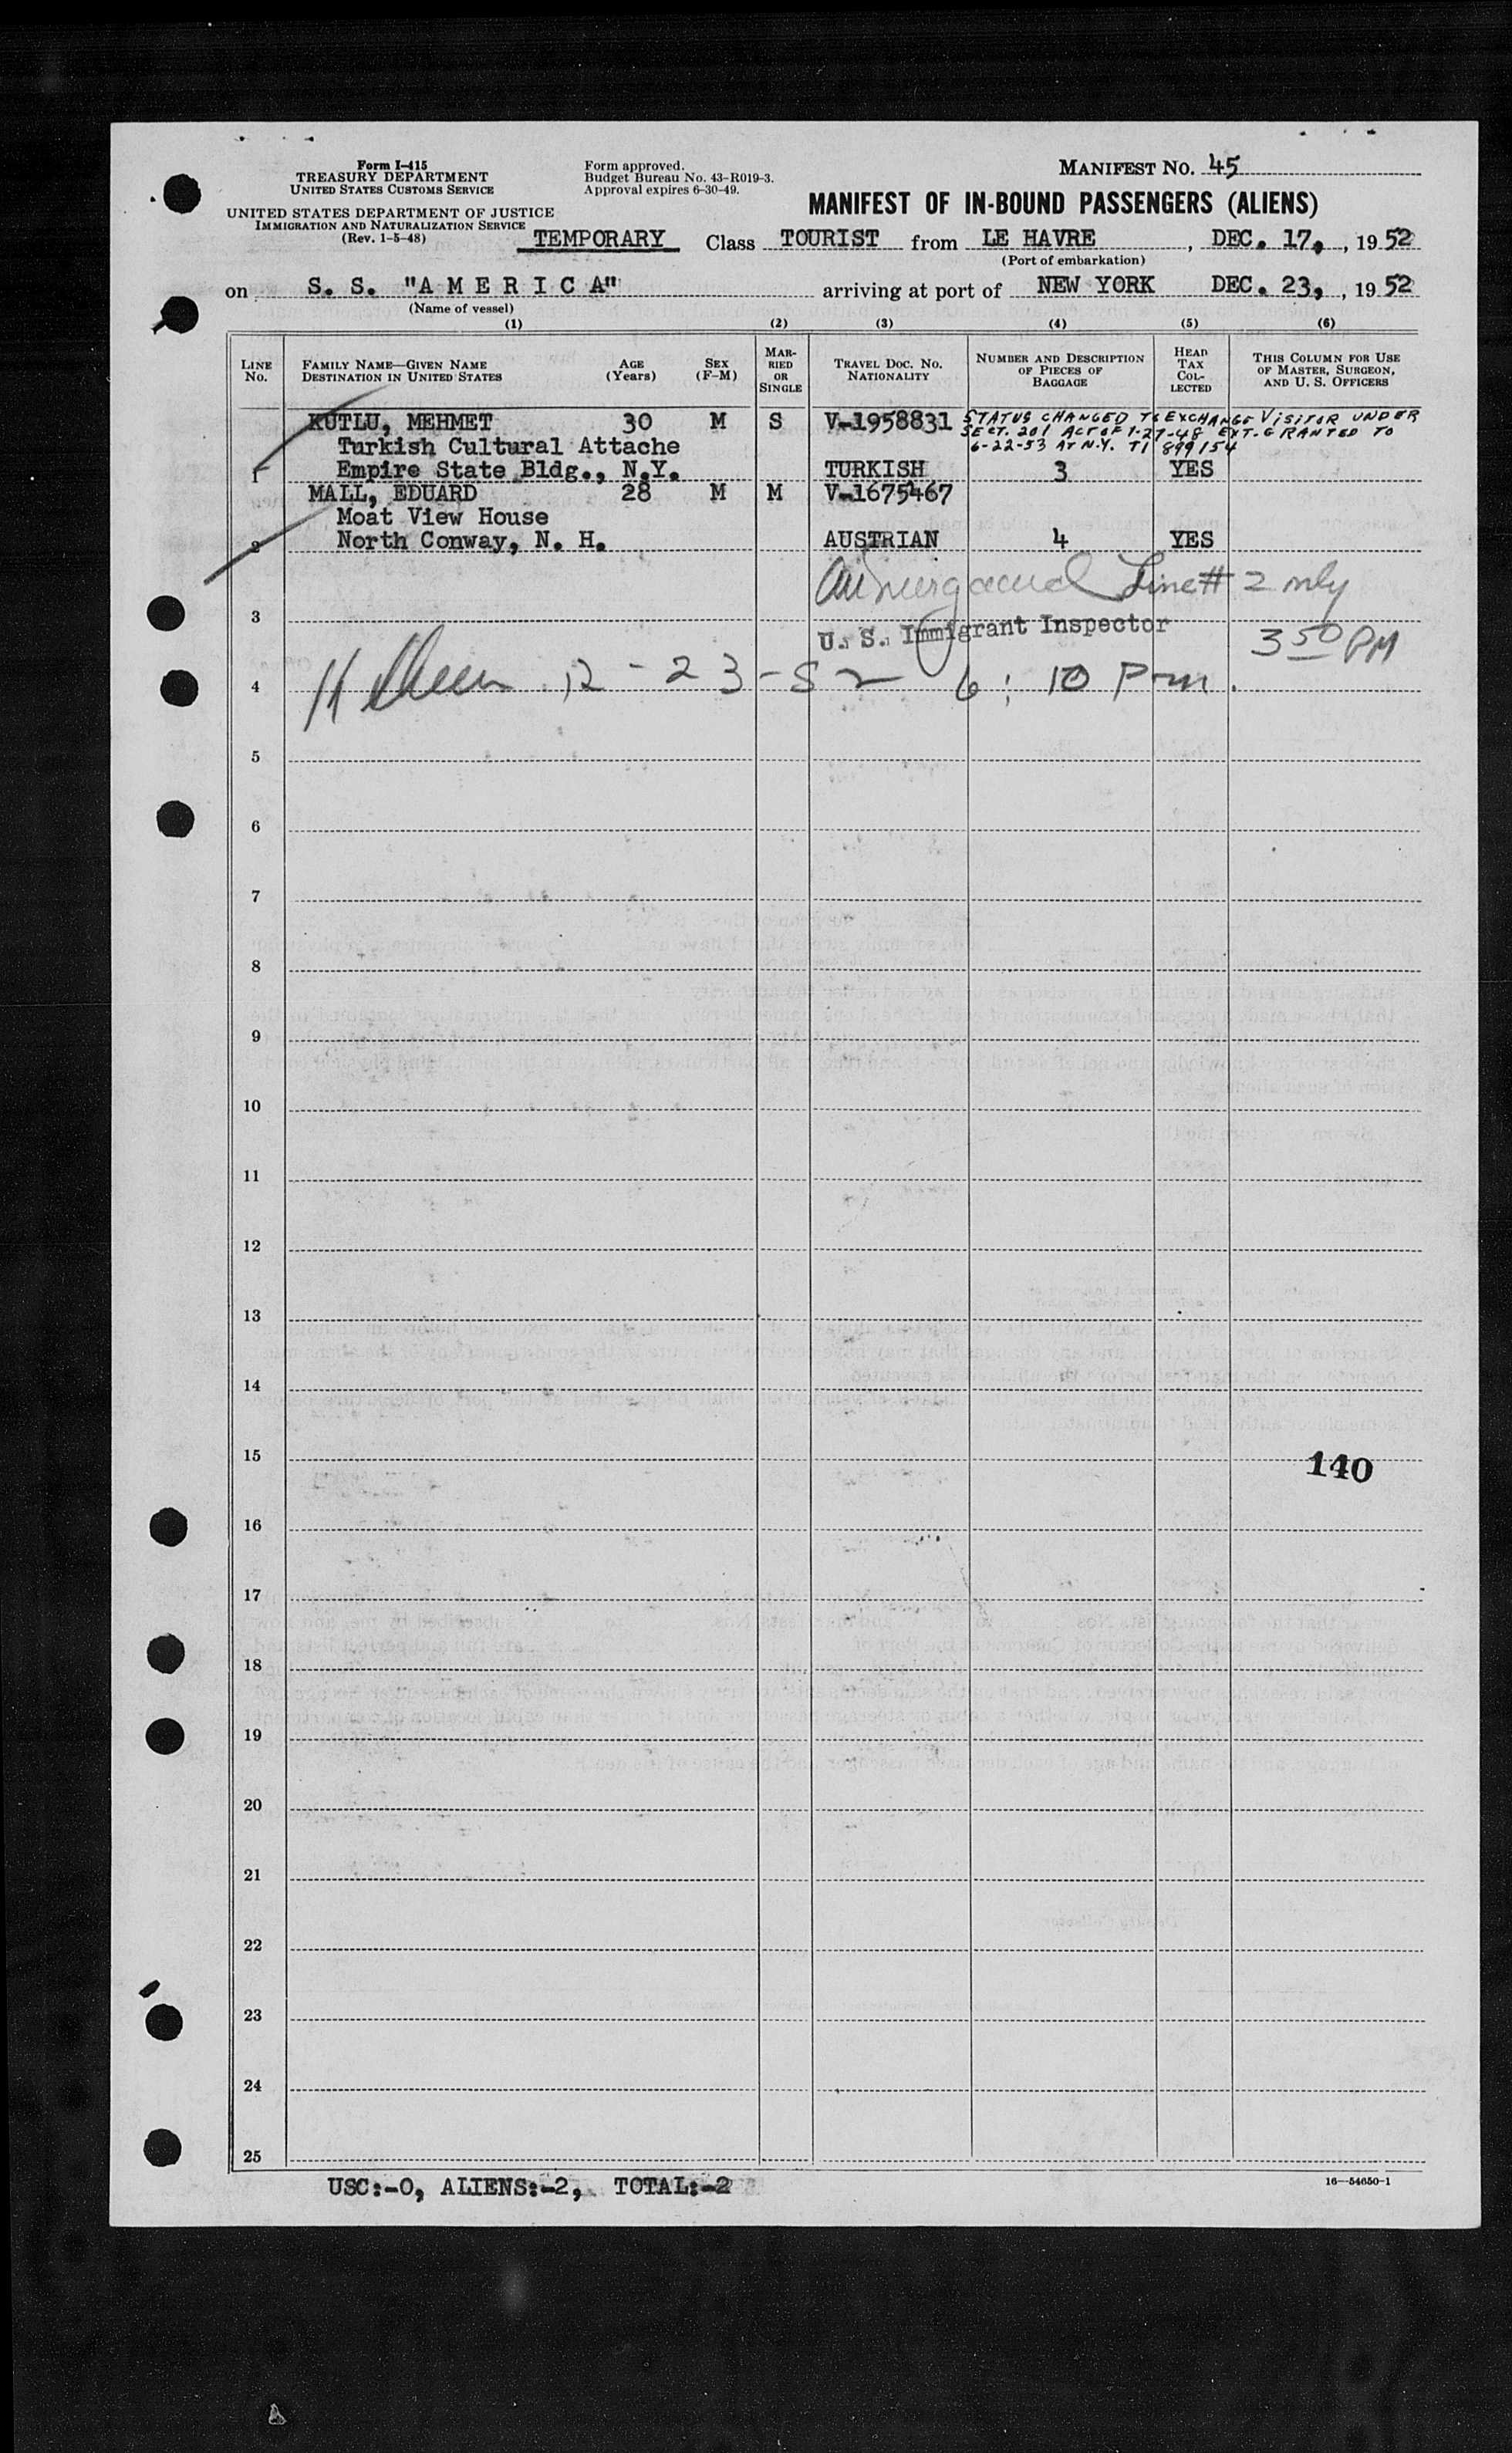 Form I-415
TREASURY DEPARTMENT
UNITED STATES CUSTOMS SERVICE
UNITED STATES DEPARTMENT OF JUSTICE
IMMIGRATION AND NATURALIZATION SERVICE
(Rev. 1-5-48)
Form approved.
Budget Bureau No. 43-R019-3.
Approval expires 6-30-49.
MANIFEST NO. 45
MANIFEST OF IN-BOUND PASSENGERS (ALIENS)
TEMPORARY Class TOURIST from LE HAVRE, DEC. 17, , 1952
(Port of embarkation)
on S. S. "A M E R I C A" arriving at port of NEW YORK DEC. 23, , 1952
(Name of vessel)
(1) (2) (3) (4) (5) (6)
LINE No.
FAMILY NAME—GIVEN NAME
DESTINATION IN UNITED STATES
AGE (Years)
SEX (F-M)
MARRIED OR SINGLE
TRAVEL DOC. NO. NATIONALITY
NUMBER AND DESCRIPTION OF PIECES OF BAGGAGE
HEAD TAX COLLECTED
THIS COLUMN FOR USE OF MASTER, SURGEON, AND U. S. OFFICERS
KUTLU, MEHMET 30 M S V-1958831
STATUS CHANGED TO EXCHANGE VISITOR UNDER
SECT. 201 ACT OF 1-27-48 EXT. GRANTED TO
6-22-53 AT N.Y. T1 899154
Turkish Cultural Attache
1 Empire State Bldg., N.Y. TURKISH 3 YES
MALL, EDUARD 28 M M V-1675467
Moat View House
2 North Conway, N. H. AUSTRIAN 4 YES
Line # 2 only
3 U. S. Immigrant Inspector 3 50 PM
4 12-23-52 6:10 P.m.
5
6
7
8
9
10
11
12
13
14
15
140
16
17
18
19
20
21
22
23
24
25
USC:-0, ALIENS:-2, TOTAL:-2
16—54650-1